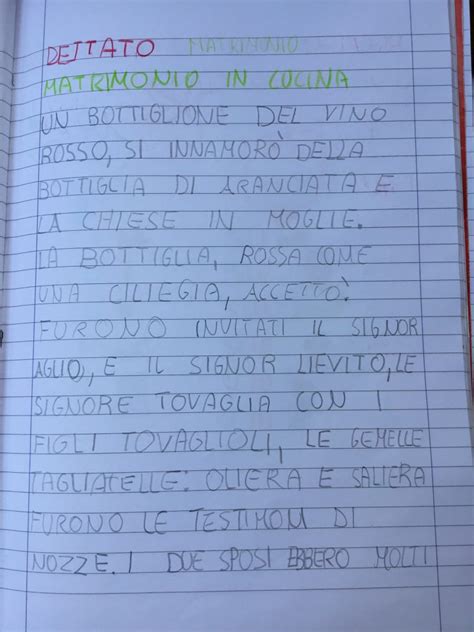 DETTATO MATRIMONIO
MATRIMONIO IN CUCINA
UN BOTTIGLIONE DEL VINO
ROSSO, SI INNAMORÒ DELLA
BOTTIGLIA DI ARANCIATA E
LA CHIESE IN MOGLIE.
LA BOTTIGLIA, ROSSA COME
UNA CILIEGIA, ACCETTÒ.
FURONO INVITATI IL SIGNOR
AGLIO, E IL SIGNOR LIEVITO, LE
SIGNORE TOVAGLIA CON I
FIGLI TOVAGLIOLI, LE GEMELLE
TAGLIATELLE. OLIERA E SALIERA
FURONO LE TESTIMONI DI
NOZZE. I DUE SPOSI EBBERO MOLTI